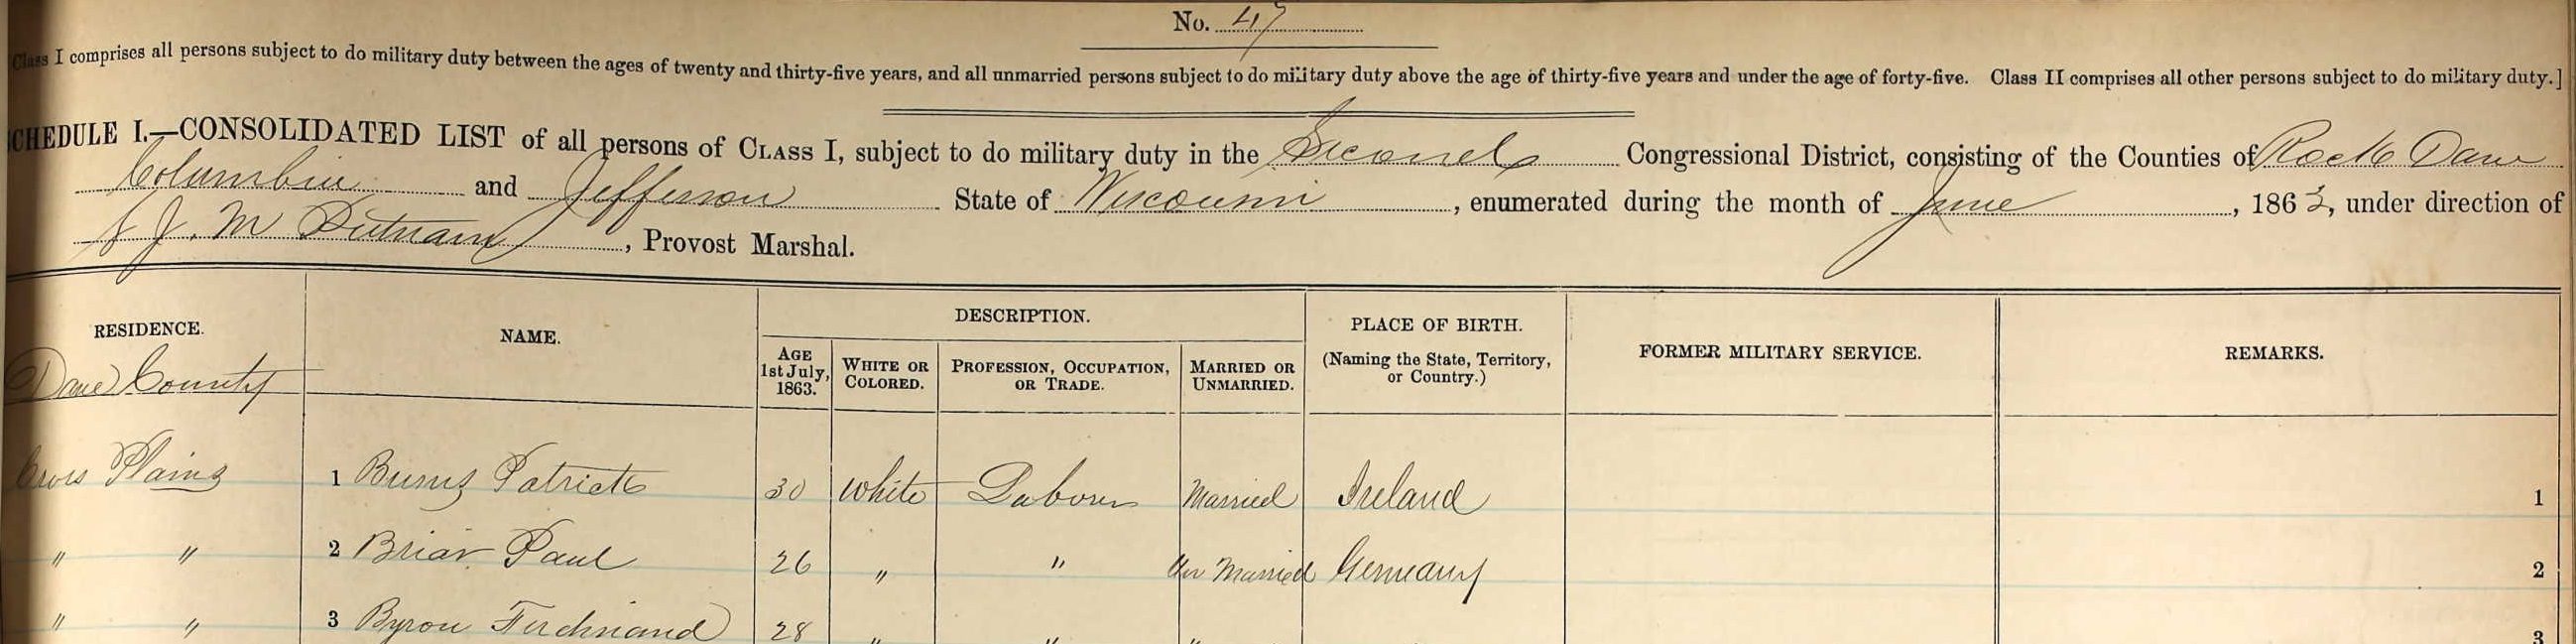 No. 47
Class I comprises all persons subject to do military duty between the ages of twenty and thirty-five years, and all unmarried persons subject to do military duty above the age of thirty-five years and under the age of forty-five. Class II comprises all other persons subject to do military duty.]
SCHEDULE I.—CONSOLIDATED LIST of all persons of CLASS I, subject to do military duty in the Second Congressional District, consisting of the Counties of Rock Dane
Columbia and Jefferson State of Wisconsin, enumerated during the month of June, 1863, under direction of
J. M Putnam, Provost Marshal.
RESIDENCE. NAME. DESCRIPTION. PLACE OF BIRTH. (Naming the State, Territory, or Country.) FORMER MILITARY SERVICE. REMARKS.
AGE 1st July, 1863. WHITE OR COLORED. PROFESSION, OCCUPATION, OR TRADE. MARRIED OR UNMARRIED.
Dane County
Cross Plains 1 Burns Patrick 30 White Laborer Married Ireland 1
" " 2 Briar Paul 26 " " Un Married Germany 2
" " 3 Byron Ferdinand 28 " " " 3